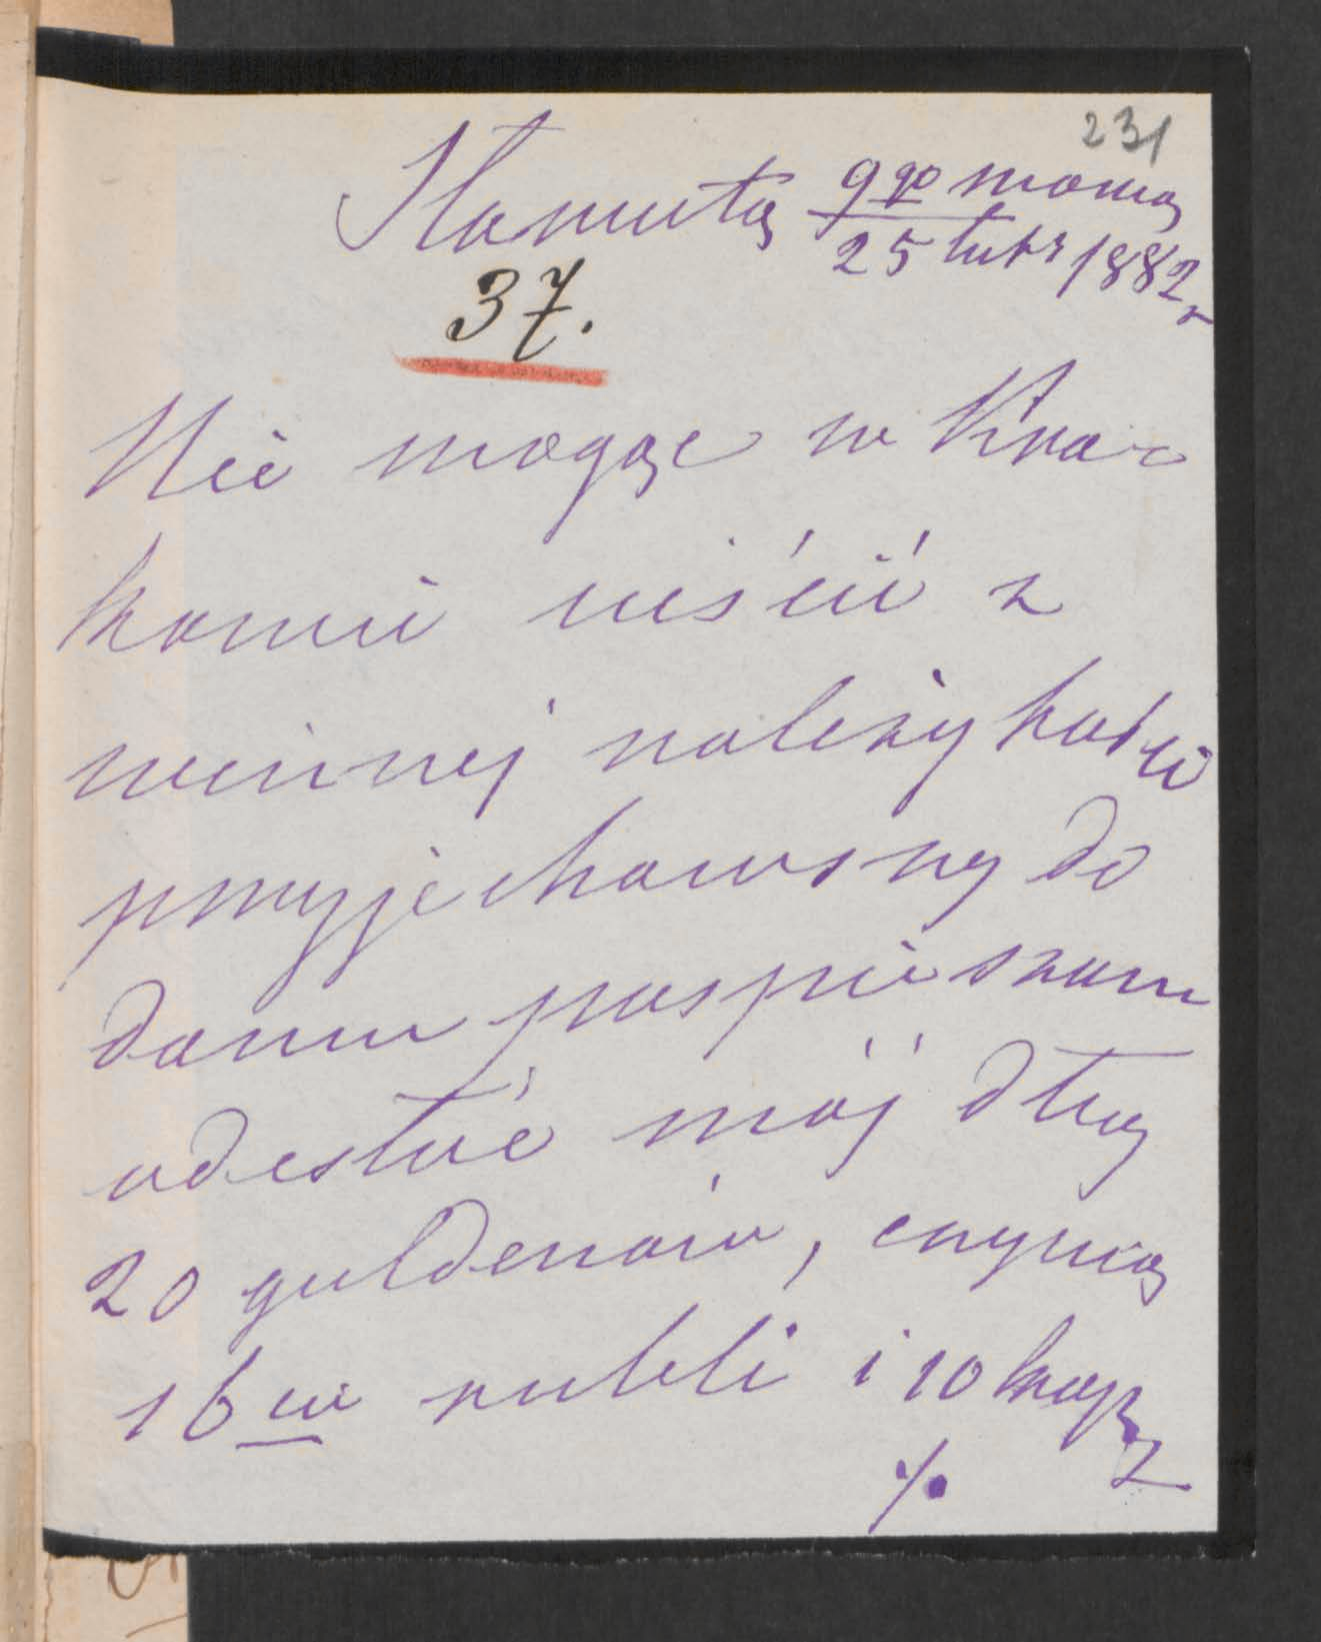 231
Sławuta 9go marca
25 lut. 1882 r
37.
Nie mogąc w Kra-
kowie uiścić z
winnej należytości
przyjechawszy do
domu pospieszam
odesłać mój dług
20 guldenów, czynią
16cie rubli i 10 kop
%